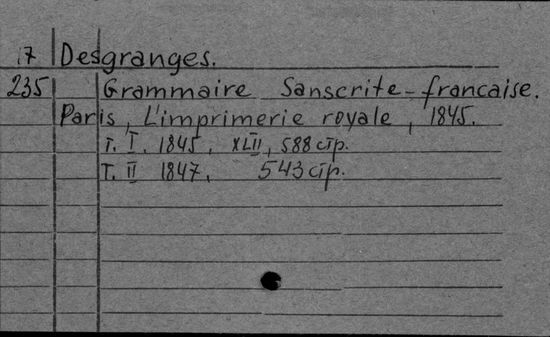 17 Desgranges.
235 Grammaire Sanscrite-francaise.
Paris, L'imprimerie royale, 1845.
т. I. 1845, XLII, 588 стр.
т. II 1847, 543 стр.